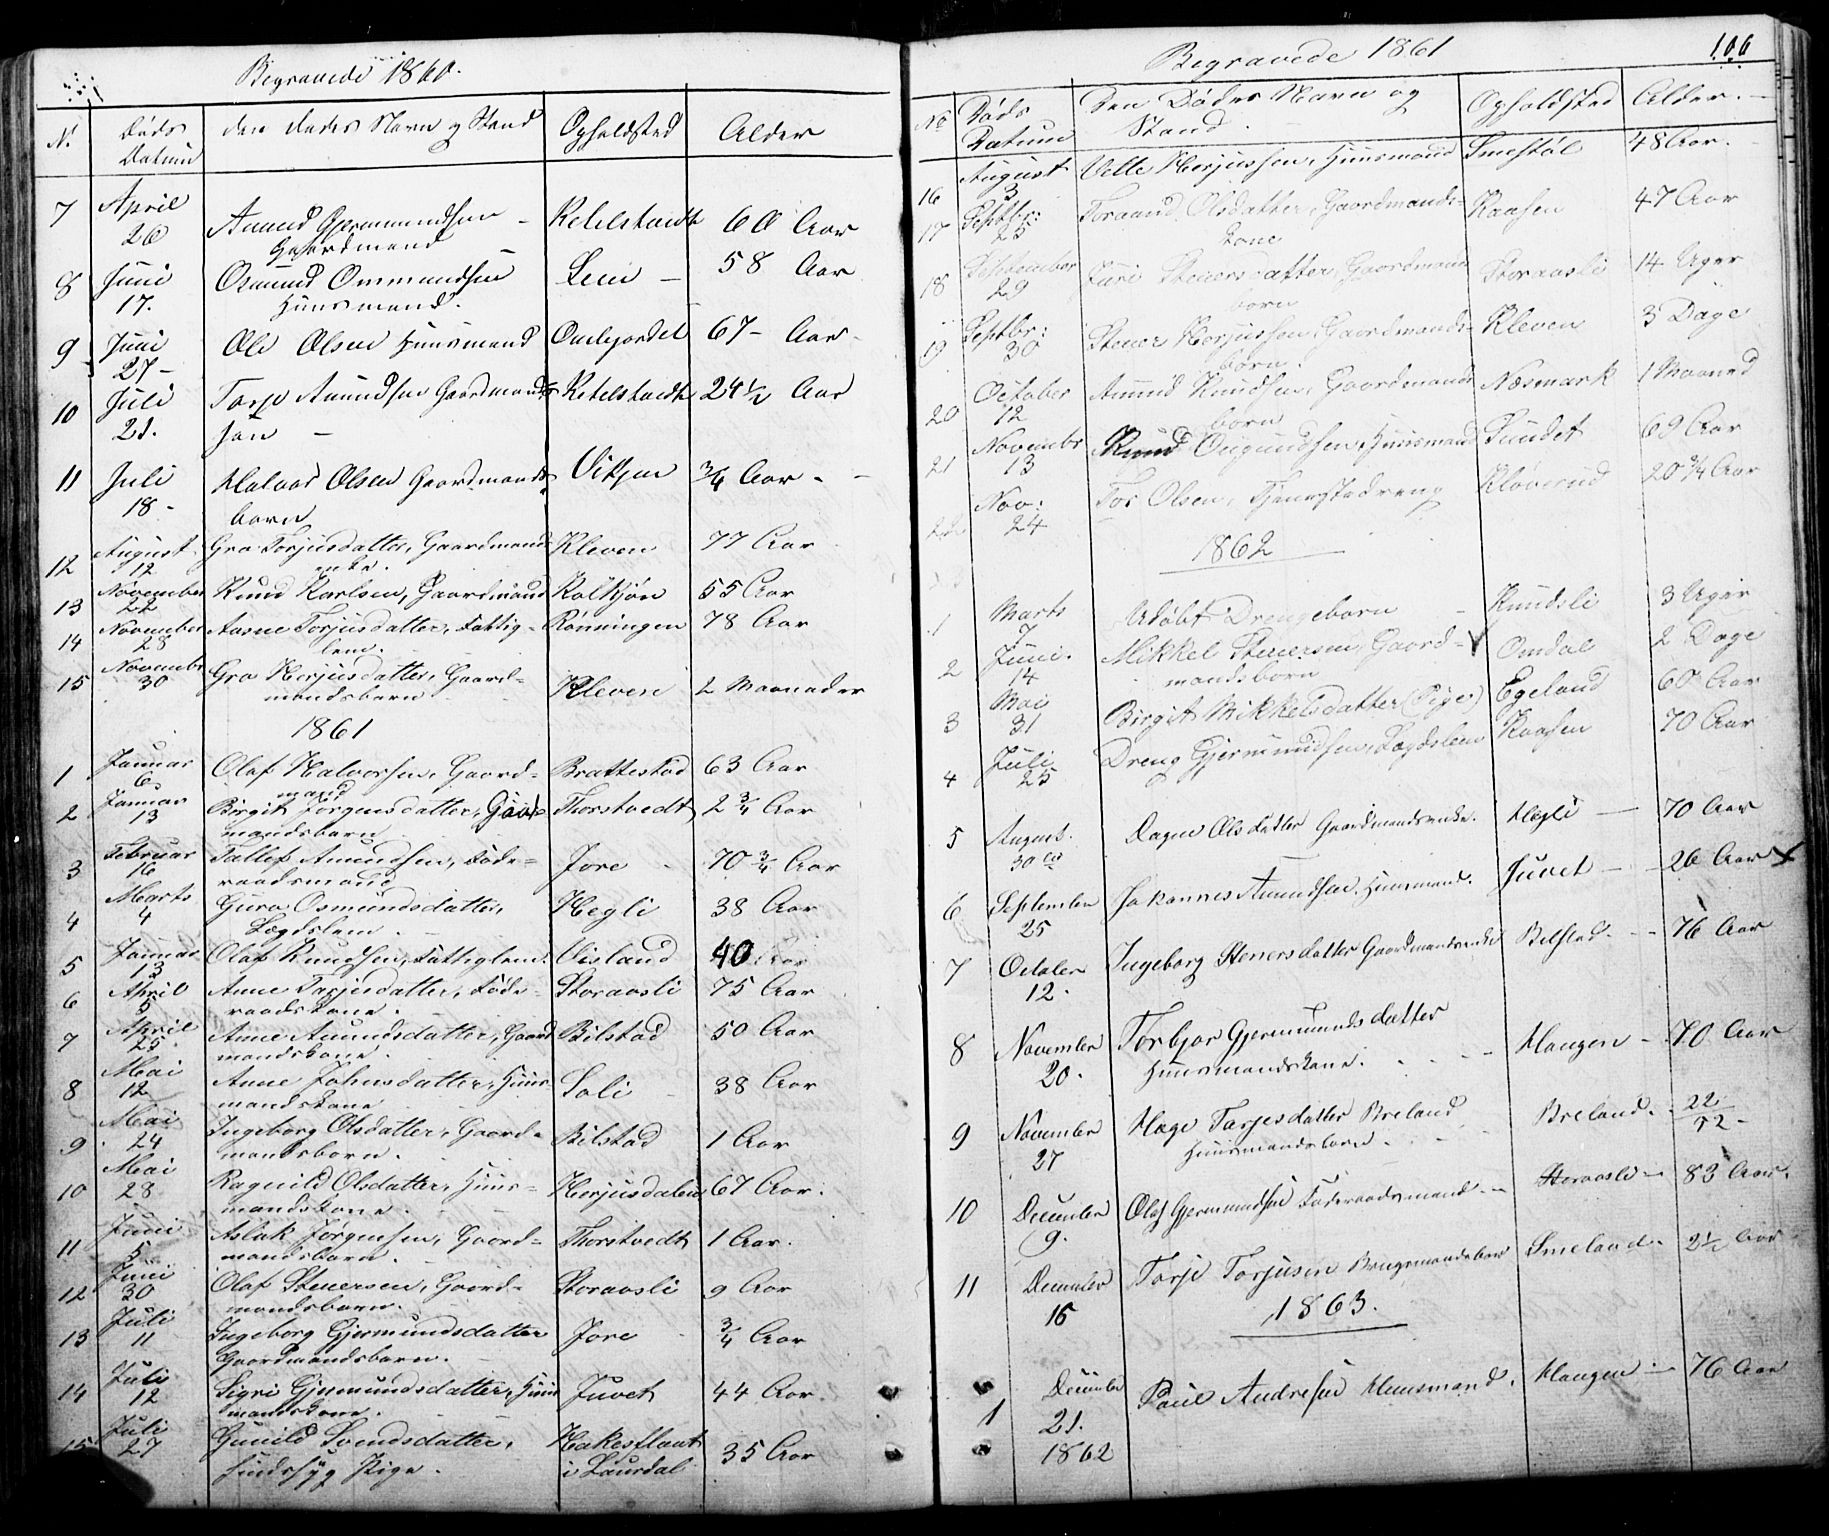 Begravede 1860.
N. Døds Datum den dødes Navn og Stand Opholdsted Alder
7 April 26 Amund Gjermundsen Gaardmand Ketelstvedt 60 Aar
8 Juni 17. Osmund Ommundsen Huusmand. Lien 58 Aar
9 Juni 27 Ole Olsen Huusmand 67 Aar
10 Juli 21. Torje Amundsen Gaardmands søn Ketelstvedt 24 1/2 Aar
11 Juli 18 Halvor Olsen Gaardmands barn Vikjen 3/4 Aar
12 August 12 Gro Torjusdatter, Gaardmand enke. Kleven 77 Aar
13 November 22 Knud Karlsen, Gaardmand Kolkjøn 55 Aar
14 November 28 Aasne Torjusdatter, Fattig= lem. Rønningen 78 Aar
15 Novembr 30 Gro Herjusdatter, Gaard= mandsbarn Kleven 2 Maaneder
1861
1 Januar 6 Olaf Halvorsen, Gaard= mand Brattestad 63 Aar
2 Januar 13 Birgit Jørgensdatter, Gaard= mandsbarn Thorstvedt 2 3/4 Aar
3 Februar 16 Tallef Amundsen, Føde= raadsmand Jore 70 3/4 Aar
4 Marts 4 Guro Osmundsdatter, Lægdslem. Hegli 38 Aar
5 Januar 13 Olaf Knudsen, Fattiglem. Visland 40 Aar
6 April 5 Anne Tarjesdatter, Føde= raadskone. Storaasli 75 Aar
7 April 25 Anne Amundsdatter, Gaard mandskone. Bilstad 50 Aar
8 Mai 12 Anne Johnsdatter, Huus= mandskone Soli 38 Aar
9 Mai 24 Ingeborg Olsdatter, Gaard= mandsbarn. Bilstad 1 Aar
10 Mai 28 Ragnild Olsdatter, Huus= mandskone. Herjusdalen 67 Aar.
11 Juni 5 Aslak Jørgensen, Gaard= mandsbarn. Thorstvedt 1 Aar.
12 Juni 30 Olaf Stenersen, Gaard= mandsbarn. Storaasli 9 Aar
13 Juli 11 Ingeborg Gjermundsdatter Gaardmandsbarn. Jore 3/4 Aar
14 Juli 12 Sigri Gjermundsdatter, Huus mandskone. Juvet 44 Aar
15 Juli 27 Gunild Svendsdatter, sindssyg Pige. i Laurdal 35 Aar
Begravede 1861
106
No Døds Datum Den Dødes Navn og Stand. Opholdsted Alder.
16 August 3 Vetle Herjussen, Huusmand Smestøl 48 Aar.
17 Septbr: 25 Toraand Olsdatter, Gaardmands= kone Kaasen 47 Aar
18 September 29 Juri Stenersdatter, Gaardmand barn Storaasli 14 Uger
19 Septbr: 30 Stener Herjussen, Gaardmands= barn. Kleven 3 Dage
20 October 12 Amund Knudsen, Gaardmands barn Næsmark 1 Maaned
21 Novembr 13 Knud Ougundsen, Huusmand Sundet 69 Aar
22 Nov: 24 Tor Olsen, Tjenestedreng Kløverud 20 3/4 Aar
1862
1 Marts 7 Udøbt Drengebarn Knudsli 3 Uger
2 Juni. 14 Mikkel Stenersen, Gaard= mandsbarn Omdal 2 Dage
3 Mai 31 Birgit Mikkelsdatter (Pige) Egeland 60 Aar
4 Juli 25 Dreng Gjermundsen, Lægdslem Kaasen 70 Aar
5 August. 30 Dagne Olsdatter Gaardmandsenke. Hegli 70 Aar
6 September 25 Johannes Amundsen Huusmand. Juvet 26 Aar
7 October 12. Ingeborg Stenersdatter Gaardmandsenke Bilstad. 76 Aar
8 November 20. Torbjør Gjermundsdatter Huusmandskone. Haugen 70 Aar
9 November 27 Hæge Tarjesdatter Breland Huusmandsbarn. Breland. 22/52
10 December 9. Olaf Gjermundsen Føderaadsmand Storaasli 83 Aar.
11 December 15 Torje Torjusen Brugsmandsbarn Smeland. 2 1/2 Aar
1863.
1 December 21. 1862 Paul Andresen Huusmand. Haugen 76 Aar